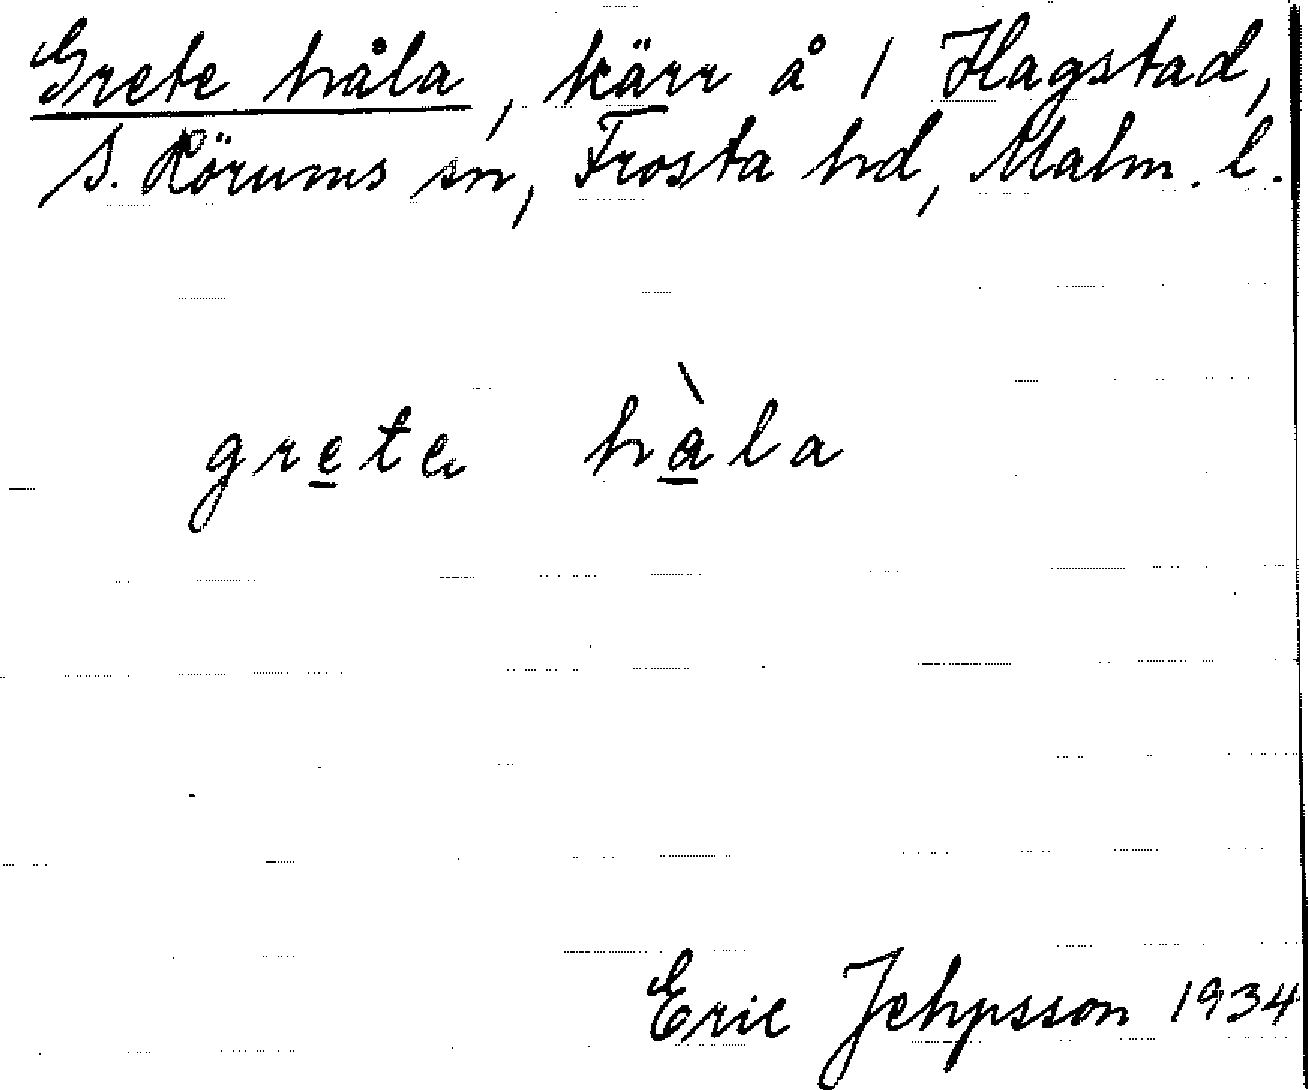 Grete håla, kärr å 1 Hagstad,
S. Rörums sn, Frosta hd, Malm. l.
grete hàla
Eric Jehpsson 1934